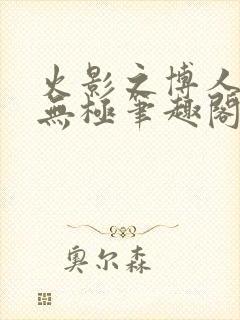 火影之博人
無極筆趣閣
奧尔森